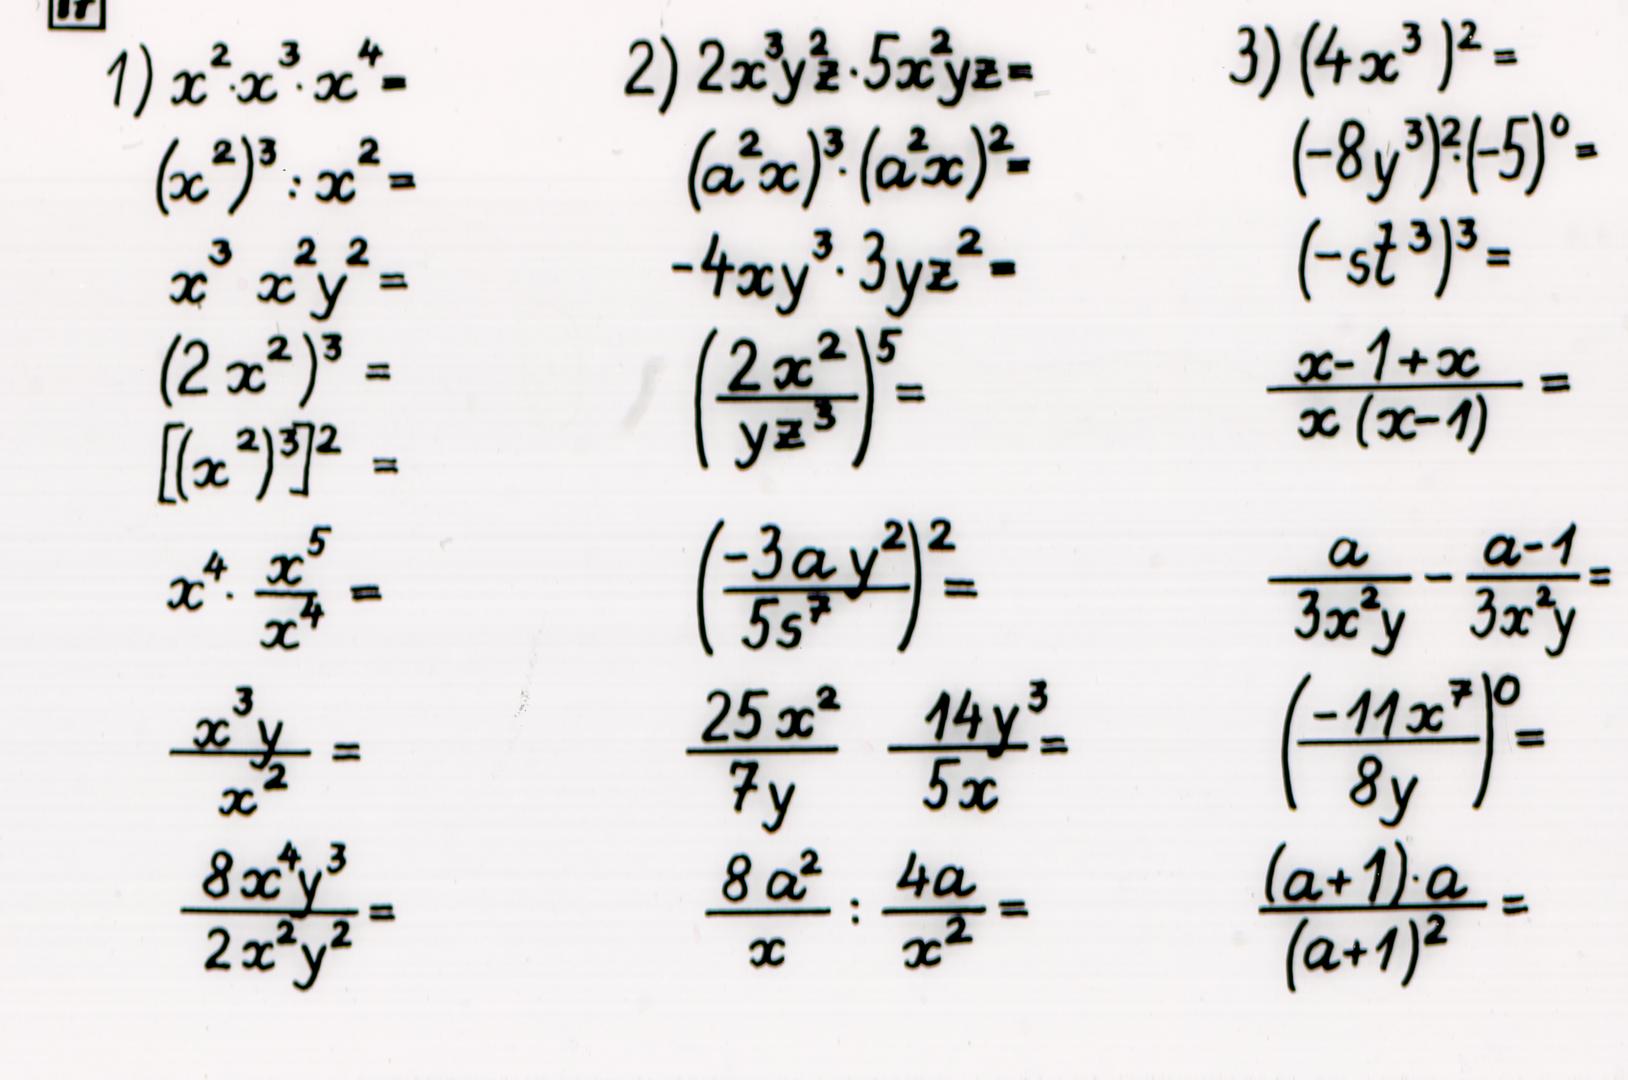 17
1) x²·x³·x⁴=
(x²)³ : x² =
x³ x²y² =
(2x²)³ =
[(x²)³]² =
x⁴ · x⁵/x⁴ =
x³y/x² =
8x⁴y³/2x²y² =
2) 2x³y²z·5x²yz=
(a²x)³·(a²x)²=
-4xy³·3yz²=
(2x²/yz³)⁵=
(-3ay²/5s⁷)²=
25x²/7y 14y³/5x=
8a²/x : 4a/x² =
3) (4x³)²=
(-8y³)²:(-5)⁰=
(-st³)³=
x-1+x/x(x-1) =
a/3x²y - a-1/3x²y=
(-11x⁷/8y)⁰=
(a+1)·a/(a+1)² =